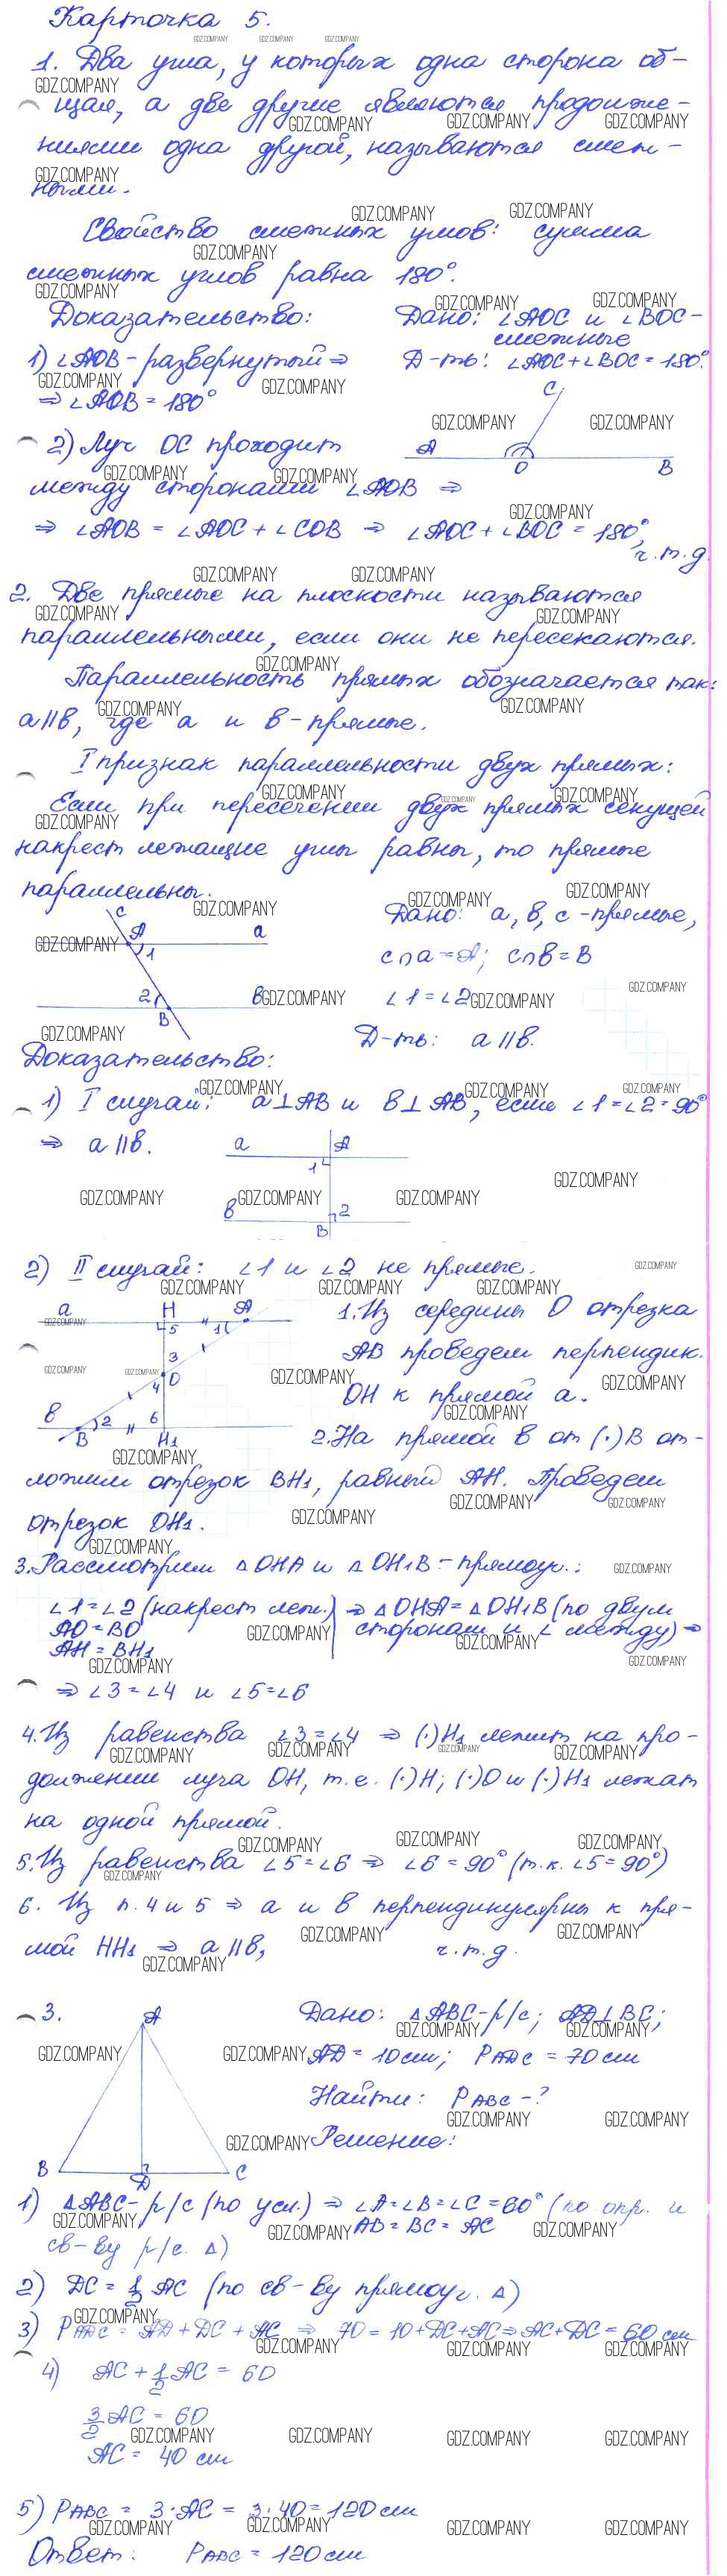 Карточка 5.
1. Два угла, у которых одна сторона об-
щая, а две другие являются продолже-
ниями одна другой, называются смеж-
ными.
Свойство смежных углов: сумма
смежных углов равна 180°.
Доказательство:
1) ∠AOB - развернутый ⇒
⇒ ∠AOB = 180°
2) Луч OC проходит
между сторонами ∠AOB ⇒
Дано: ∠AOC и ∠BOC -
смежные
Д-ть: ∠AOC + ∠BOC = 180°.
C
A
O
B
⇒ ∠AOB = ∠AOC + ∠COB ⇒ ∠AOC + ∠BOC = 180°,
ч.т.д.
2. Две прямые на плоскости называются
параллельными, если они не пересекаются.
Параллельность прямых обозначается так:
a || b, где a и b - прямые.
I признак параллельности двух прямых:
Если при пересечении двух прямых секущей
накрест лежащие углы равны, то прямые
параллельны.
c
A
a
1
2
b
B
Дано: a, b, c - прямые,
c∩a = A; c∩b = B
∠1 = ∠2
Д-ть: a || b.
Доказательство:
1) I случай: a ⊥ AB и b ⊥ AB, если ∠1 = ∠2 = 90°
⇒ a || b.
a
A
1
b
2
B
2) II случай: ∠1 и ∠2 не прямые.
a
H
A
5
1
3
O
4
b
2
6
B
H1
1. Из середины O отрезка
AB проведем перпендик.
OH к прямой a.
2. На прямой b от (·)B от-
ложим отрезок BH1, равный AH. Проведем
отрезок OH1.
3. Рассмотрим △OHA и △OH1B - прямоуг.:
∠1 = ∠2 (накрест леж.) ⇒ △OHA = △OH1B (по двум
AO = BO сторонам и ∠ между) ⇒
AH = BH1
⇒ ∠3 = ∠4 и ∠5 = ∠6
4. Из равенства ∠3 = ∠4 ⇒ (·)H1 лежит на про-
должении луча OH, т.е. (·)H; (·)O и (·)H1 лежат
на одной прямой.
5. Из равенства ∠5 = ∠6 ⇒ ∠6 = 90° (т.к. ∠5 = 90°)
6. Из п. 4 и 5 ⇒ a и b перпендикулярны к пря-
мой HH1 ⇒ a || b, ч.т.д.
3.
A
B
D
C
Дано: △ABC - р/с; AD ⊥ BC;
AD = 10 см; PADC = 70 см
Найти: PABC - ?
Решение:
1) △ABC - р/с (по усл.) ⇒ ∠A = ∠B = ∠C = 60° (по опр. и
AB = BC = AC
св-ву р/с. △)
2) DC = 1/2 AC (по св-ву прямоуг. △)
3) PADC = AD + DC + AC ⇒ 70 = 10 + DC + AC ⇒ AC + DC = 60 см
4) AC + 1/2 AC = 60
3/2 AC = 60
AC = 40 см
5) PABC = 3·AC = 3·40 = 120 см
Ответ: PABC = 120 см
GDZ.COMPANY